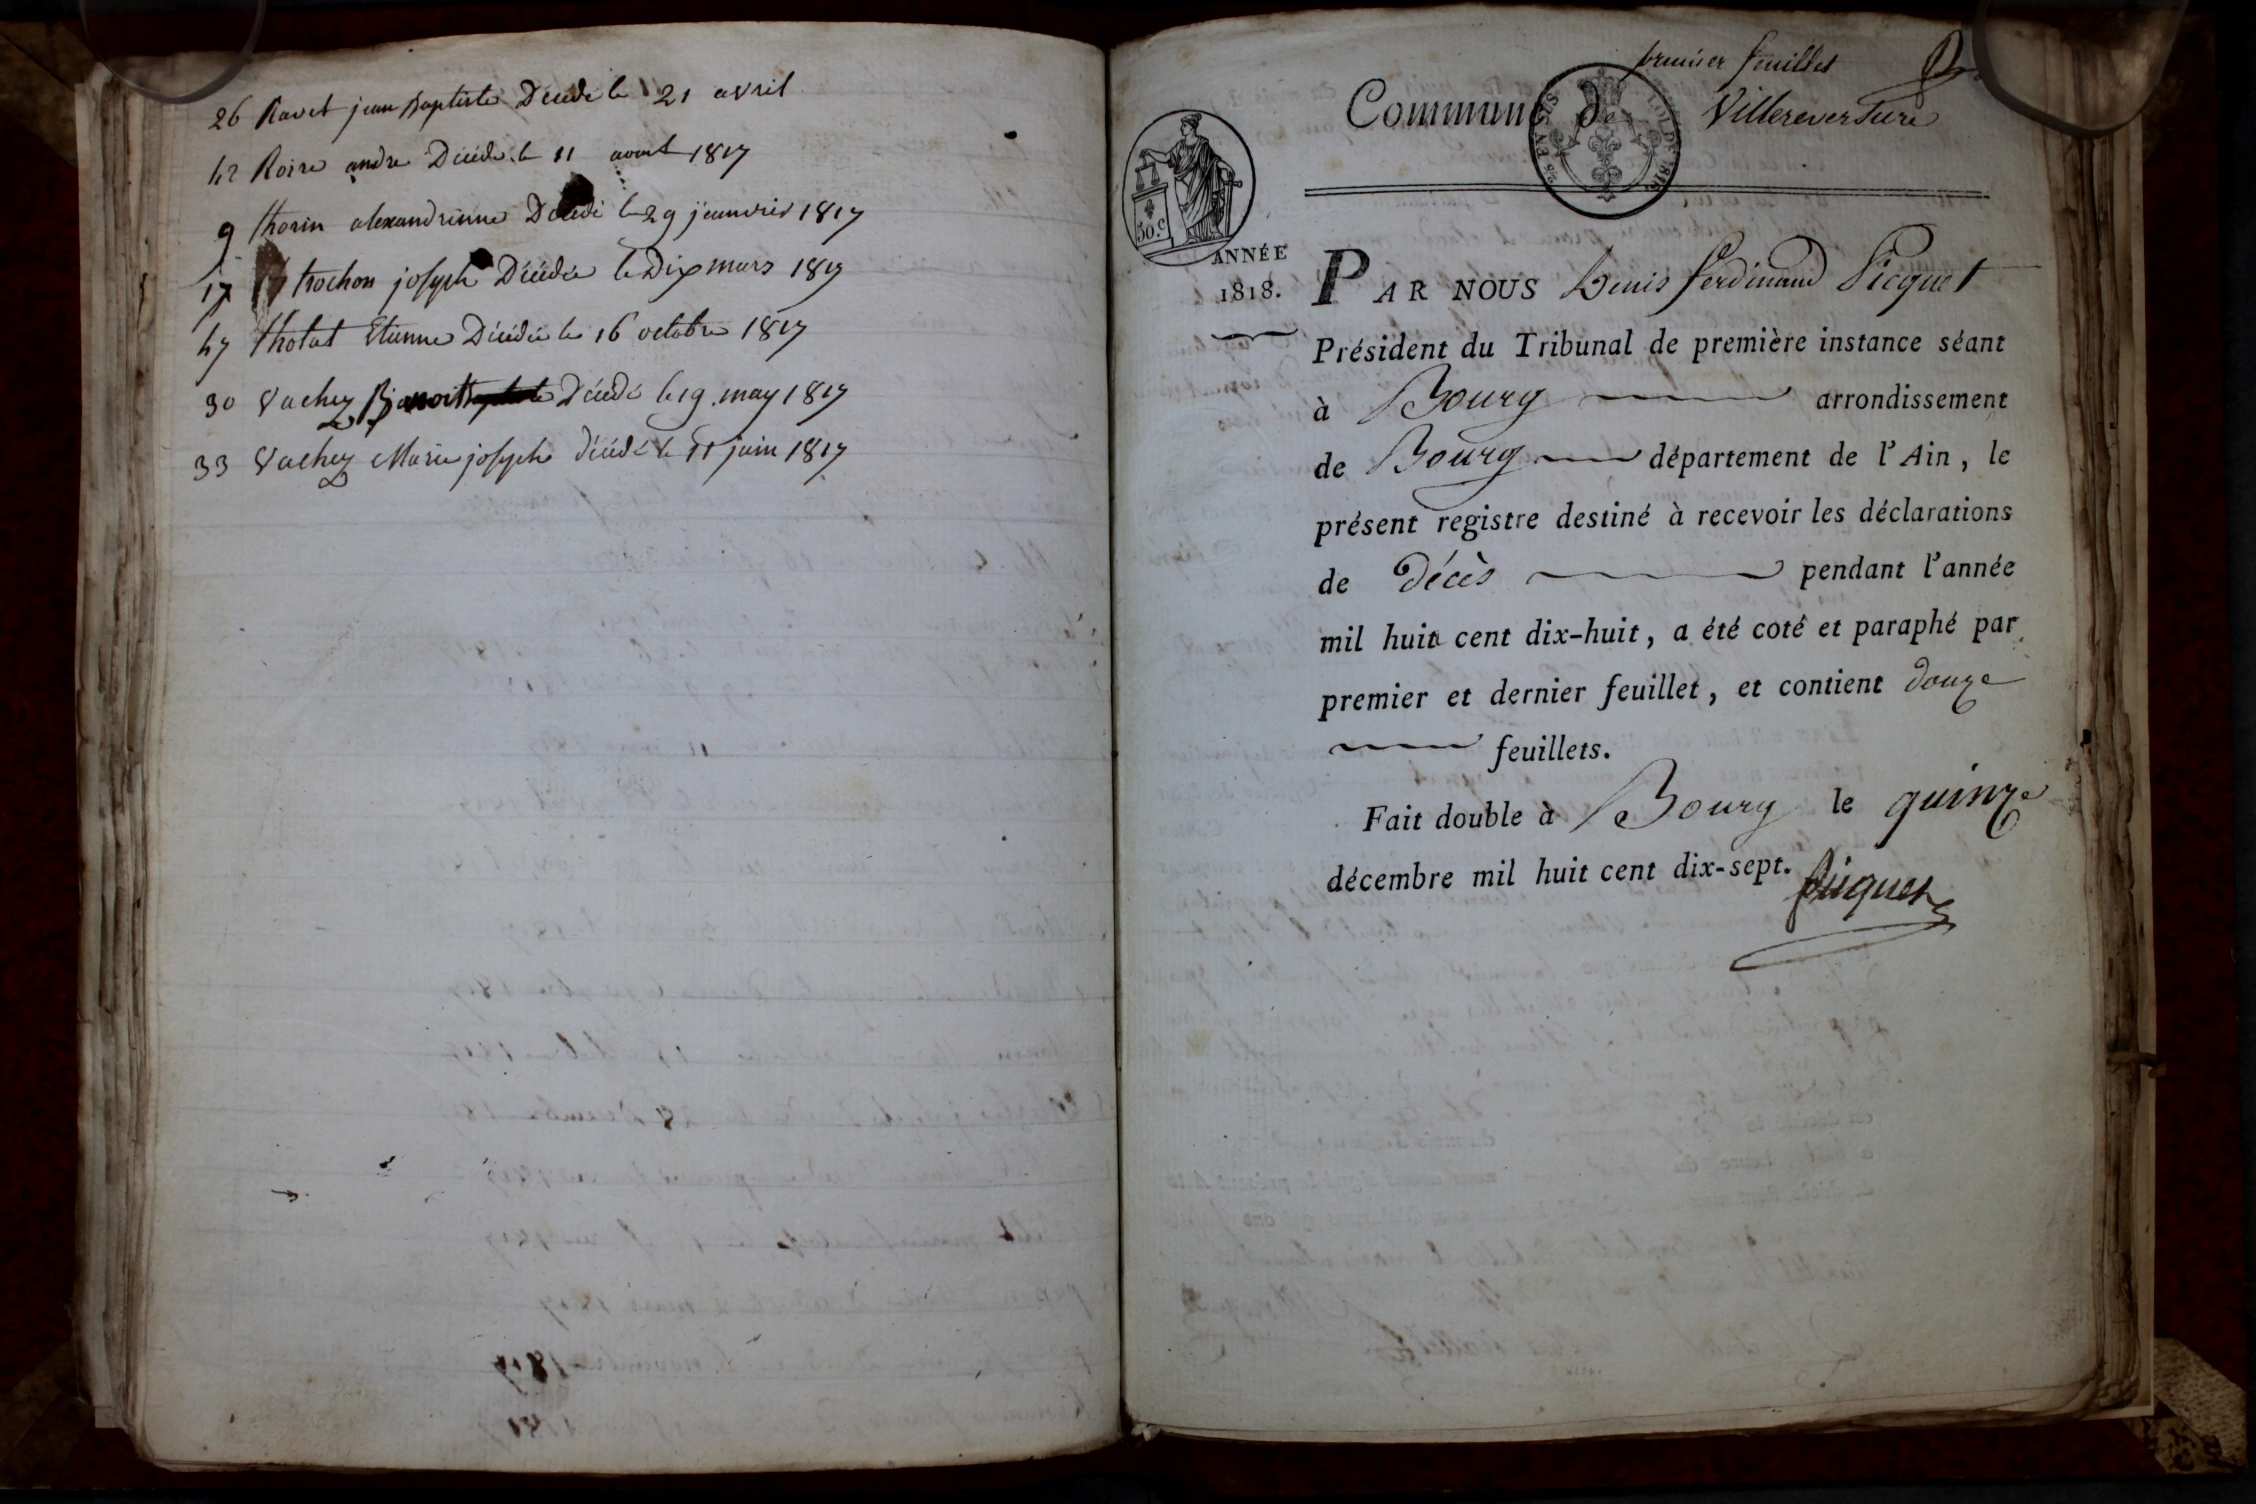 26 Ravet jean Baptiste Décédé le 21 avril
42 Roire andre Décédé le 11 aout 1817
9 thorin alexandrinne Décédé le 29 jeanvier 1817
17 trochon joseph Décédé le Dix mars 1817
47 tholat Etienne Décédé le 16 octobre 1817
30 Vachez Décédé le 19 may 1817
33 Vachez Marie joseph décédé le 11 juin 1817
premier feuillet
Commune de Villereversure
50.c
LOI DE 1816
ANNÉE
1818.
PAR NOUS Denis ferdinand Picquet
Président du Tribunal de première instance séant
à Bourg arrondissement
de Bourg département de l'Ain, le
présent registre destiné à recevoir les déclarations
de décès pendant l'année
mil huit cent dix-huit, a été coté et paraphé par
premier et dernier feuillet, et contient douze
feuillets.
Fait double à Bourg le quinze
décembre mil huit cent dix-sept.
Picquet